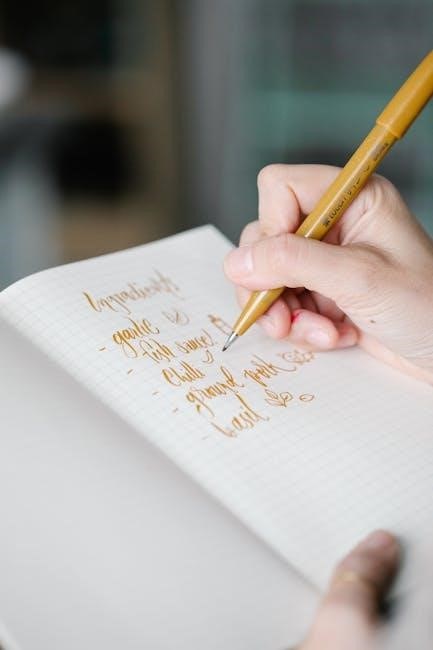 Ingredients
- garlic
- fish sauce
- chilli
- ground pork
- basil